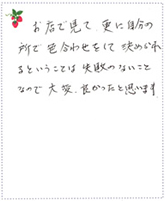 お店で見て、更に自分の
所で色合わせをして決められ
るということは失敗のないこと
なので大変、良かったと思います